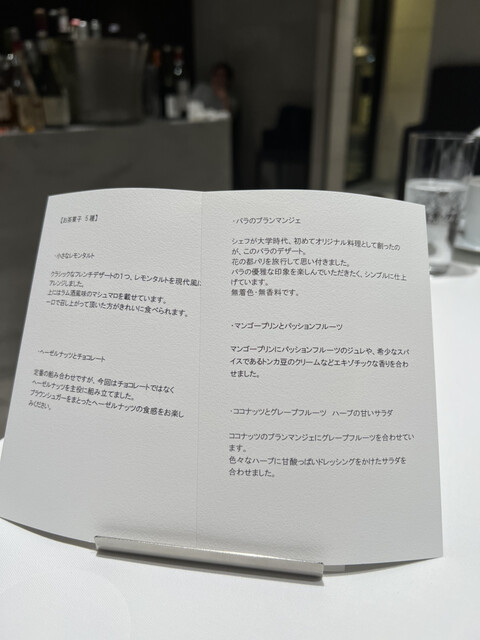 【お茶菓子 5 種】
・小さなレモンタルト
クラシックなフレンチデザートの1つ、レモンタルトを現代風に
アレンジしました。
上にはラム酒風味のマシュマロを載せています。
一口で召し上がって頂いた方がきれいに食べられます。
・ヘーゼルナッツとチョコレート
定番の組み合わせですが、今回はチョコレートではなく
ヘーゼルナッツを主役に組み立てました。
ブラウンシュガーをまとったヘーゼルナッツの食感をお楽し
みください。
・バラのブランマンジェ
シェフが大学時代、初めてオリジナル料理として創ったの
が、このバラのデザート。
花の都パリを旅行して思い付きました。
バラの優雅な印象を楽しんでいただきたく、シンプルに仕上
げています。
無着色・無香料です。
・マンゴープリンとパッションフルーツ
マンゴープリンにパッションフルーツのジュレや、希少なスパ
イスであるトンカ豆のクリームなどエキゾチックな香りを合わ
せました。
・ココナッツとグレープフルーツ ハーブの甘いサラダ
ココナッツのブランマンジェにグレープフルーツを合わせてい
ます。
色々なハーブに甘酸っぱいドレッシングをかけたサラダを
合わせました。